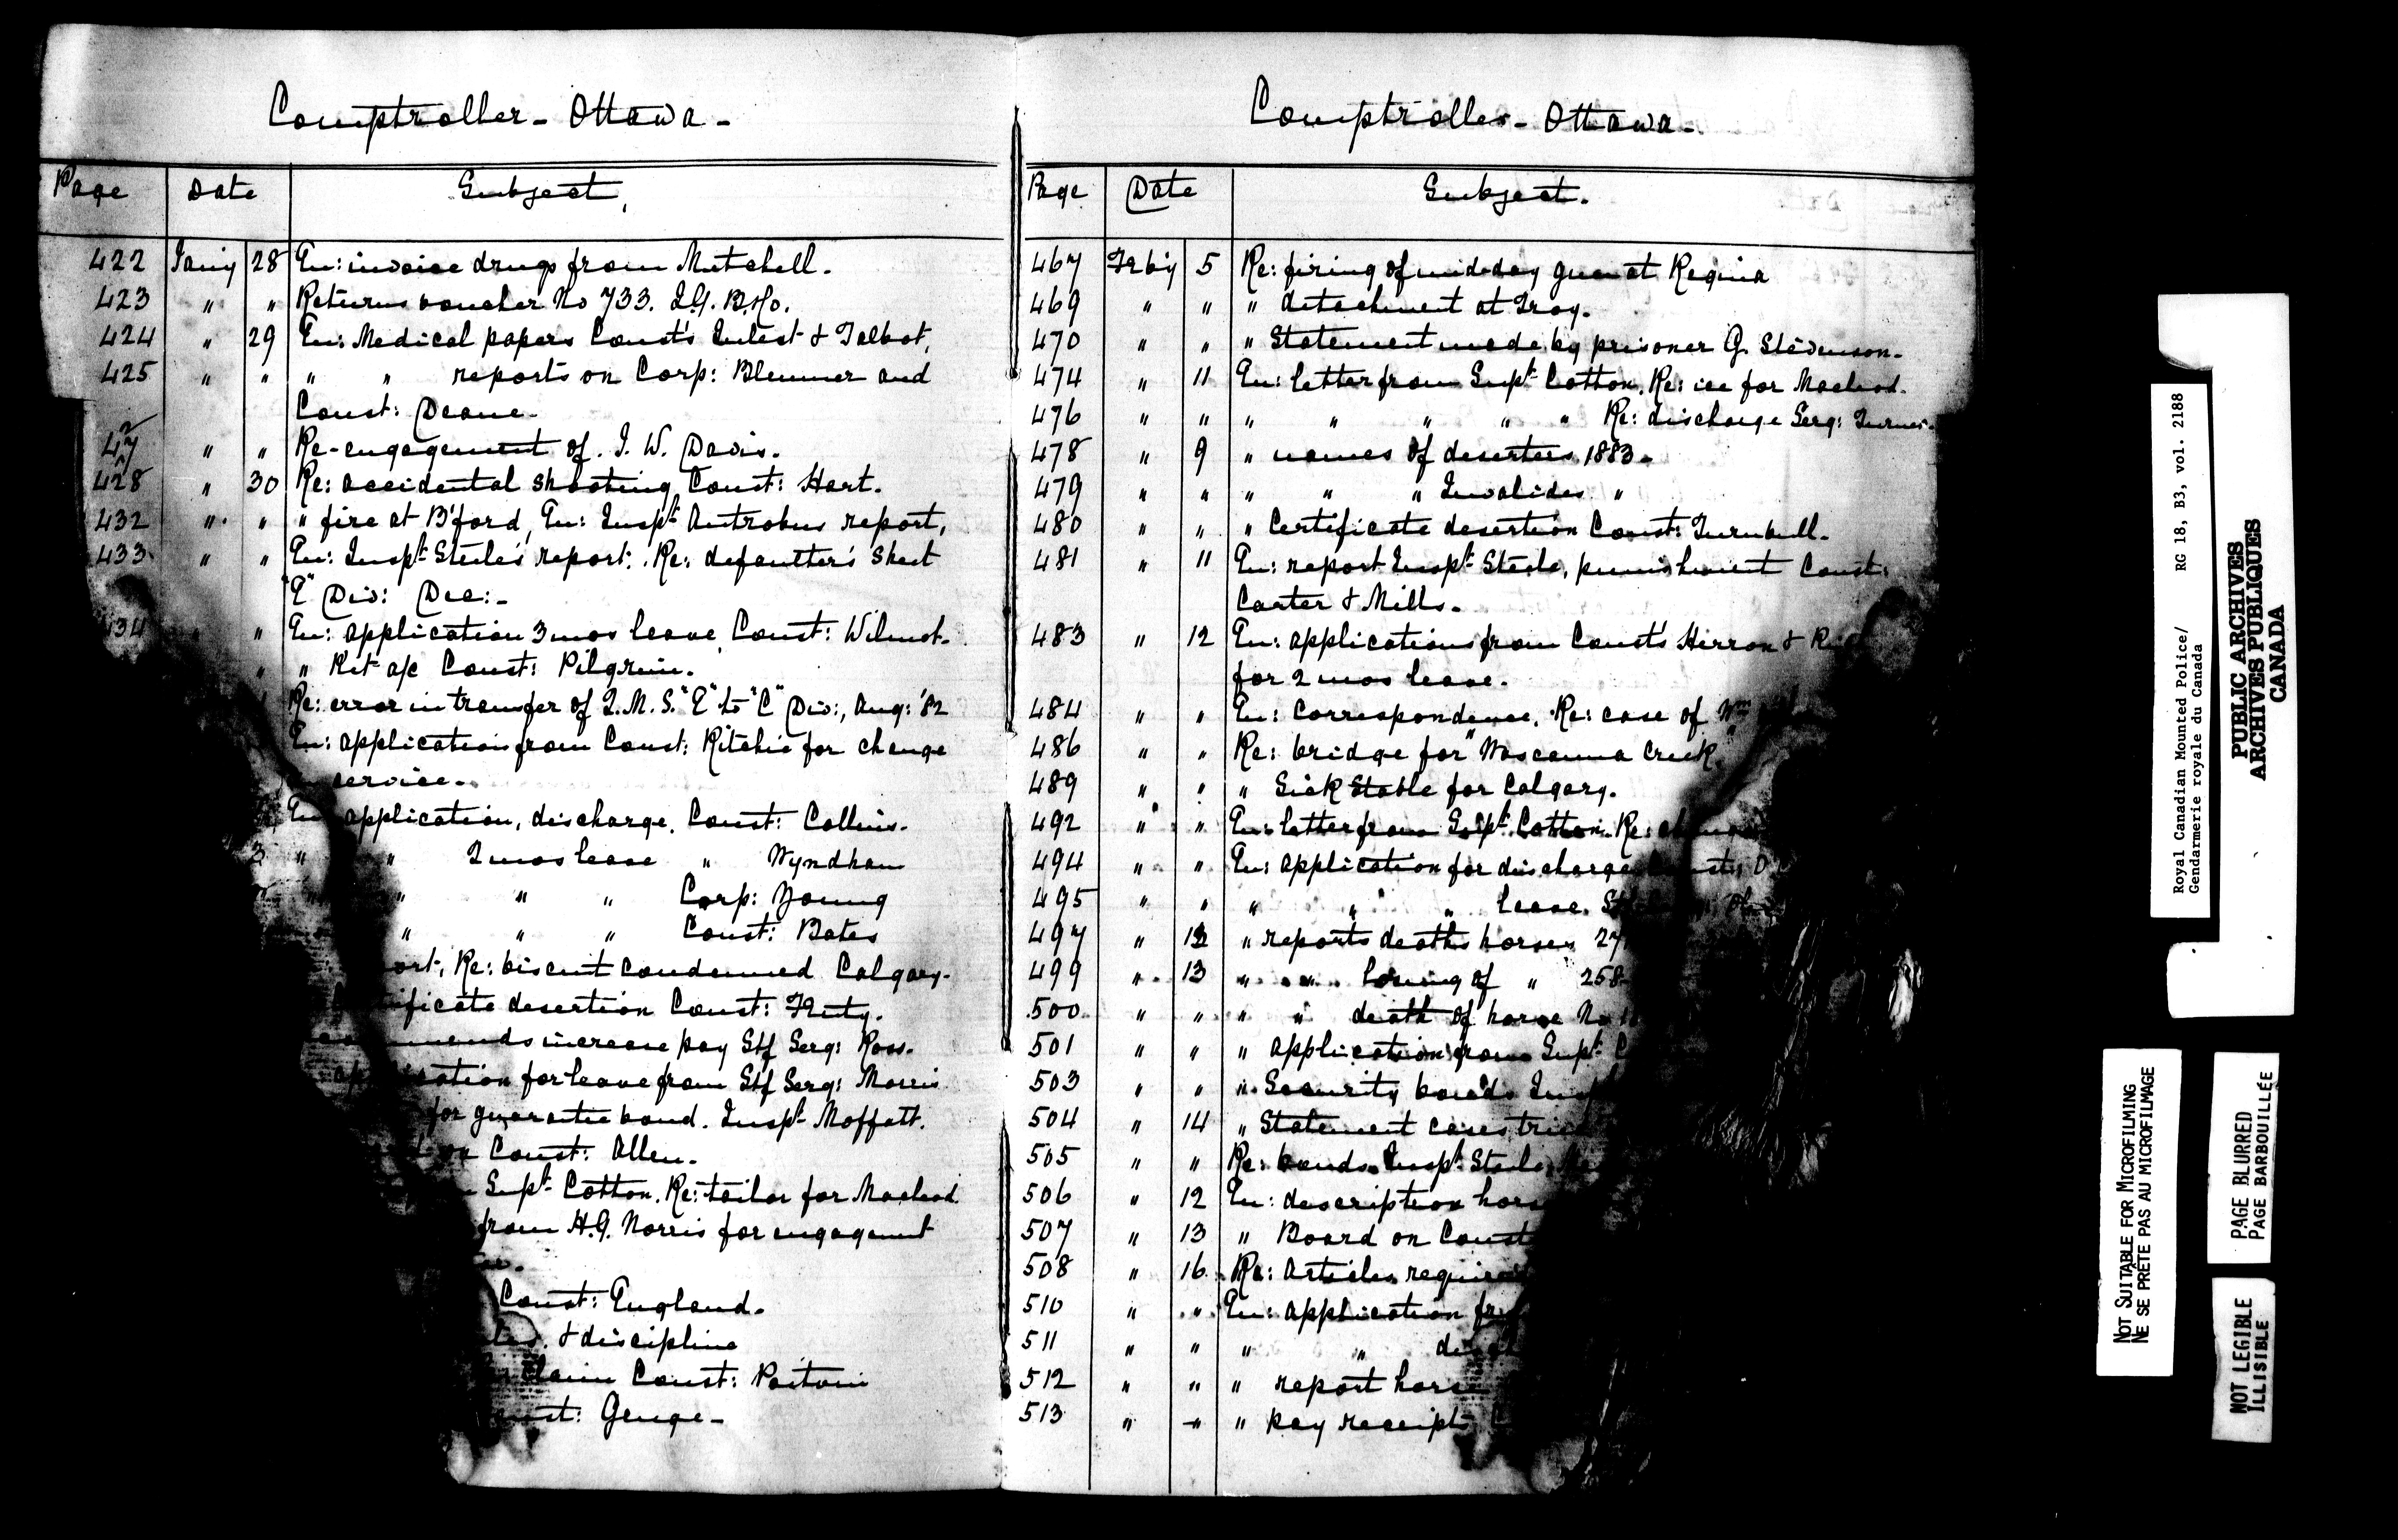 Comptroller - Ottawa -
Page Date Subject,
422 Jany 28 En: invoice drugs from Mitchell.
423 " " Returns voucher No 733. I.G. B.Ho.
424 " 29 En: Medical papers Const's & Talbot,
425 " " " " reports on Corp: Blemmer and
Const: Deane.
427 " " Re-engagement of J. W. Davis.
428 " 30 Re: accidental shooting Const: Hart.
432 " " " fire at B'ford, En: Inspt Antrobus report,
433 " " En: Inspt Steele's report: Re: defaulter's sheet
"E" Div: Dec: -
434 " " En: application 3 mos leave, Const: Wilmot.
" " Kit a/c Const: Pilgrim.
Re: error in transfer of Q.M.S. "E" to "C" Div:, Aug: '82
En: application from Const: Ritchie for change
service.
En application, discharge. Const: Collins.
3 " " 2 mos leave " Wyndham
" " " " Corp: Young
" " " Const: Bates
Re: biscuit condemned Calgary.
desertion Const:
increase pay Stf Serg: Ross.
for leave from Stf Serg: Morris
for guarantee bond. Inspt Moffatt.
Const: Allen.
Supt Cotton. Re: tailor for Macleod
from H.G. Norris for engagement
Const: England.
& discipline
claim Const:
Const: Genge -
Comptroller - Ottawa -
Page Date Subject.
467 Feby 5 Re: firing of mid-day gun at Regina
469 " " " detachment at Troy.
470 " " " Statement made by prisoner G. Stevenson.
474 " 11 En: letter from Supt Cotton. Re: ice for Macleod.
476 " " " " " " " Re: discharge Serg: Turner.
478 " 9 " names of deserters 1883 -
479 " " " " " Invalides "
480 " " " Certificate desertion Const: Turnbull.
481 " 11 En: report Inspt Steele, punishment Const:
Carter & Mills.
483 " 12 En: applications from Const's Herron &
for 2 mos leave.
484 " " En: Correspondence. Re: case of Wm
486 " " Re: bridge for "Wascanna Creek"
489 " " " Sick Stable for Calgary.
492 " " En: letter from Supt Cotton. Re:
494 " " En: application for discharge
495 " " " " " leave.
497 " 12 " reports deaths horses 27
499 " 13 " " losing of " 258
500 " " " " death of horse No
501 " " " application from Supt
503 " " " Security bonds
504 " 14 " Statement cases
505 " " Re: bonds. Inspt Steele,
506 " 12 En: description
507 " 13 " Board on Const
508 " 16 Re: Articles
510 " " En: application
511 " " " "
512 " " " report horse
513 " " " pay receipt
Royal Canadian Mounted Police/ RG 18, B3, vol. 2188
Gendarmerie royale du Canada
PUBLIC ARCHIVES
ARCHIVES PUBLIQUES
CANADA
NOT SUITABLE FOR MICROFILMING
NE SE PRETE PAS AU MICROFILMAGE
PAGE BLURRED
PAGE BARBOUILLÉE
NOT LEGIBLE
ILLISIBLE